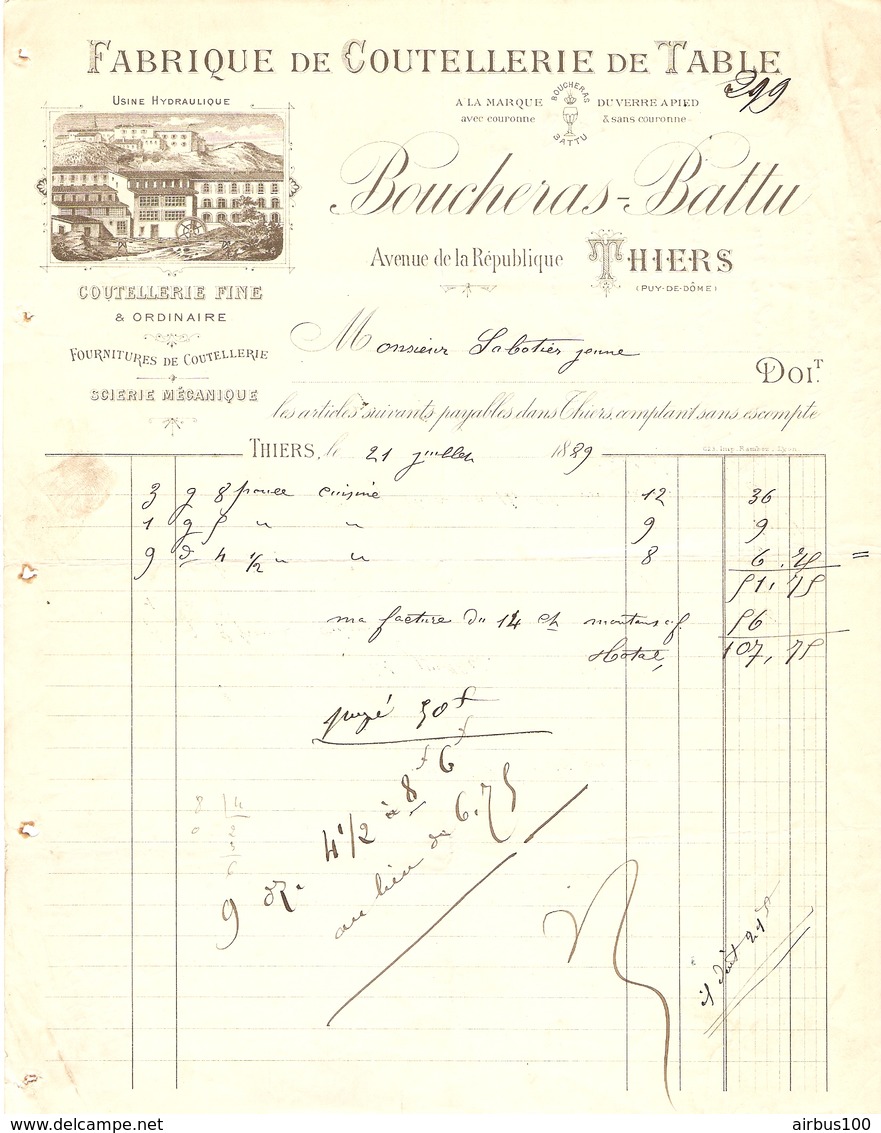 FABRIQUE DE COUTELLERIE DE TABLE
299
USINE HYDRAULIQUE
A LA MARQUE DU VERRE A PIED
avec couronne & sans couronne
BOUCHERAS
BATTU
Boucheras-Battu
Avenue de la République THIERS
(PUY-DE-DÔME)
COUTELLERIE FINE
& ORDINAIRE
FOURNITURES DE COUTELLERIE
SCIERIE MÉCANIQUE
Monsieur Sabotier jeune
DOIT.
les articles suivants payables dans Thiers, comptant sans escompte
THIERS, le 21 juillet 1889
3 g 8 pouce cuisine 12 36
1 g 5 " " 9 9
9 d 4 1/2 " " 8 6.75 =
51,75
ma facture du 14 ct montant f 56
Total, 107,75
payé 50f
9 dz. 4 1/2 à 8f 6f
au lieu de 6.75
il doit 21f
8 4
0 2
airbus100
delcampe.net